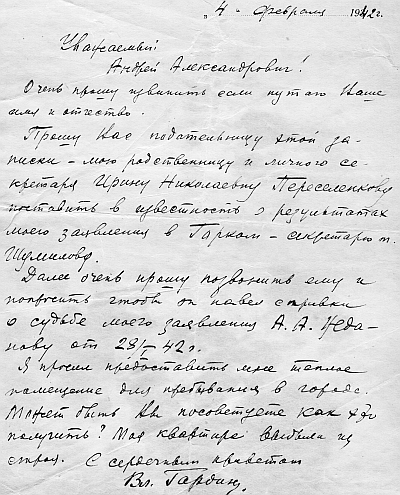 „4 “ февраля 1942 г.
Уважаемый
Андрей Александрович!
Очень прошу извинить если путаю Ваше
имя и отчество.
Прошу Вас подательницу этой за-
писки – мою родственницу и личного се-
кретаря Ирину Николаевну Переселенкову
поставить в известность о результатах
моего заявления в Горком – секретарю т.
Шумилову.
Далее очень прошу позвонить ему и
попросить чтобы он навел справки
о судьбе моего заявления А. А. Жда-
нову от 28/I – 42 г.
Я просил предоставить мне теплое
помещение для пребывания в городе.
Может быть Вы посоветуете как это
получить? Моя квартира выбыла из
строя. С сердечным приветом
Вл. Гардин.